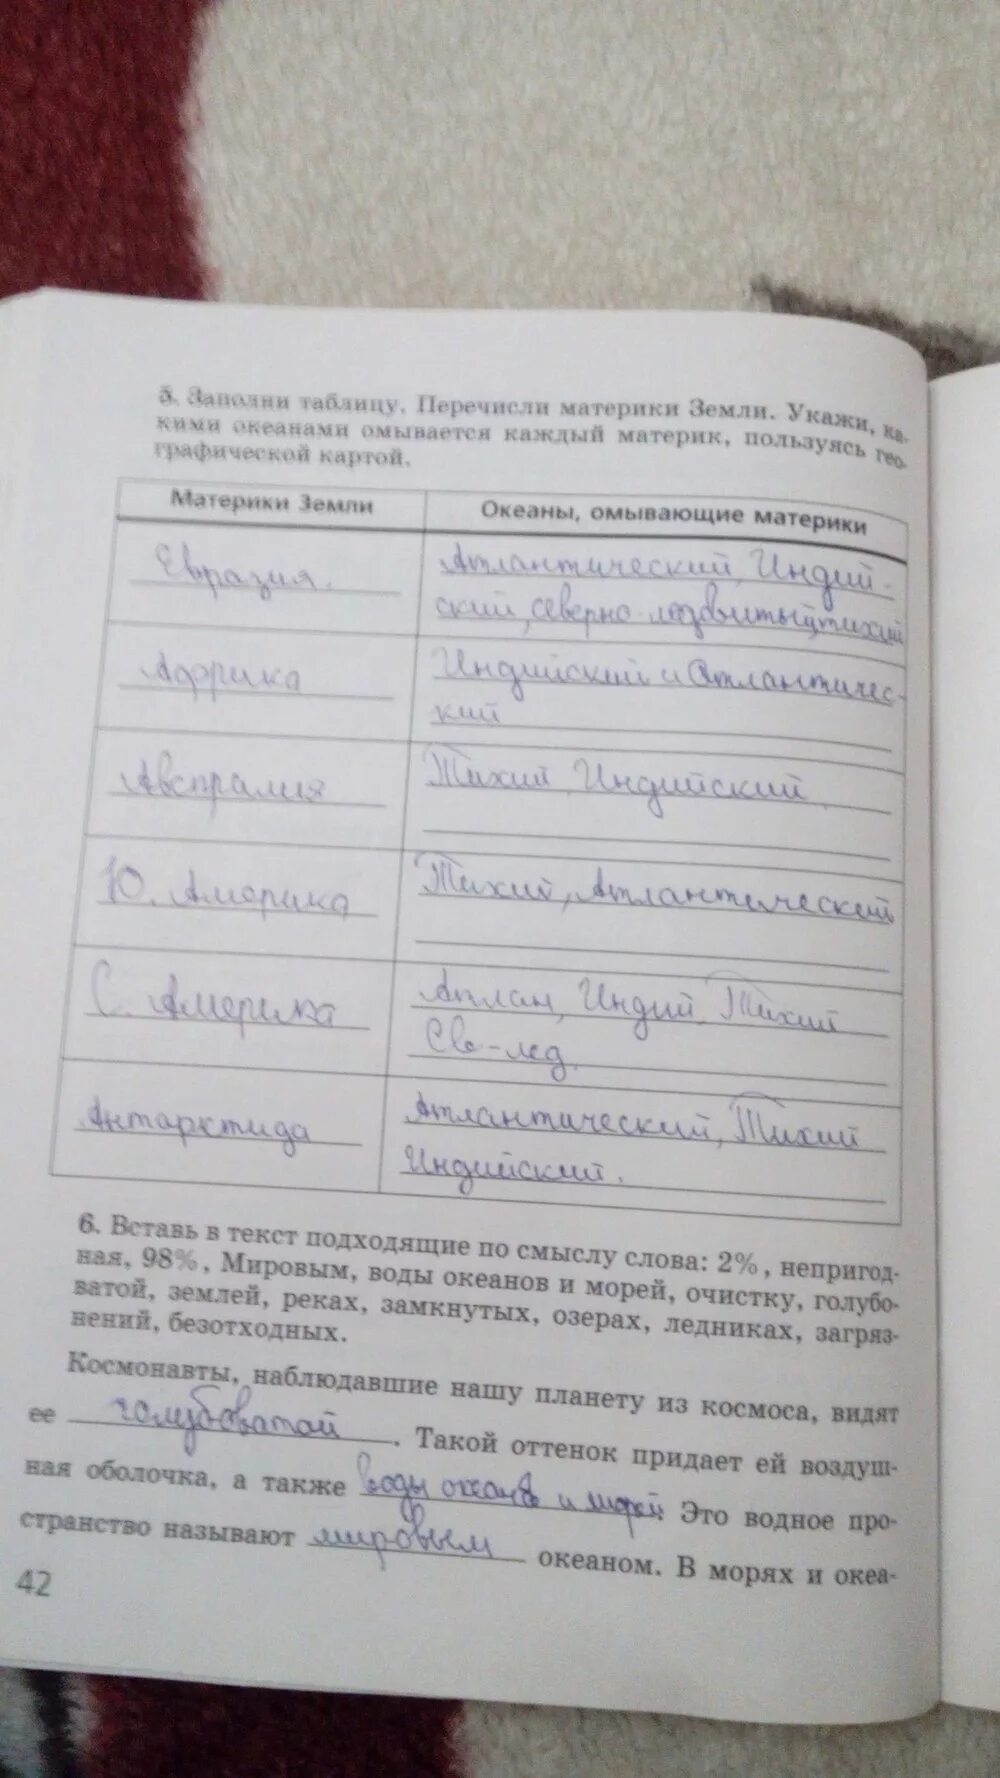 5. Заполни таблицу. Перечисли материки Земли. Укажи, ка-
кими океанами омывается каждый материк, пользуясь гео-
графической картой.
Материки Земли
Океаны, омывающие материки
Евразия.
Атлантический, Индий-
ский, северно-ледовитый, тихий
Африка
Индийский и Атлантичес-
кий
Австралия
Тихий, Индийский
Ю. Америка
Тихий, Атлантический
С. Америка
Атлан, Индий, Тихий
Све-лед.
Антарктида
Атлантический, Тихий
Индийский.
6. Вставь в текст подходящие по смыслу слова: 2%, непригод-
ная, 98%, Мировым, воды океанов и морей, очистку, голубо-
ватой, землей, реках, замкнутых, озерах, ледниках, загряз-
нений, безотходных.
Космонавты, наблюдавшие нашу планету из космоса, видят
ее голубоватой. Такой оттенок придает ей воздуш-
ная оболочка, а также воды океанов и морей. Это водное про-
странство называют мировым океаном. В морях и океа-
42